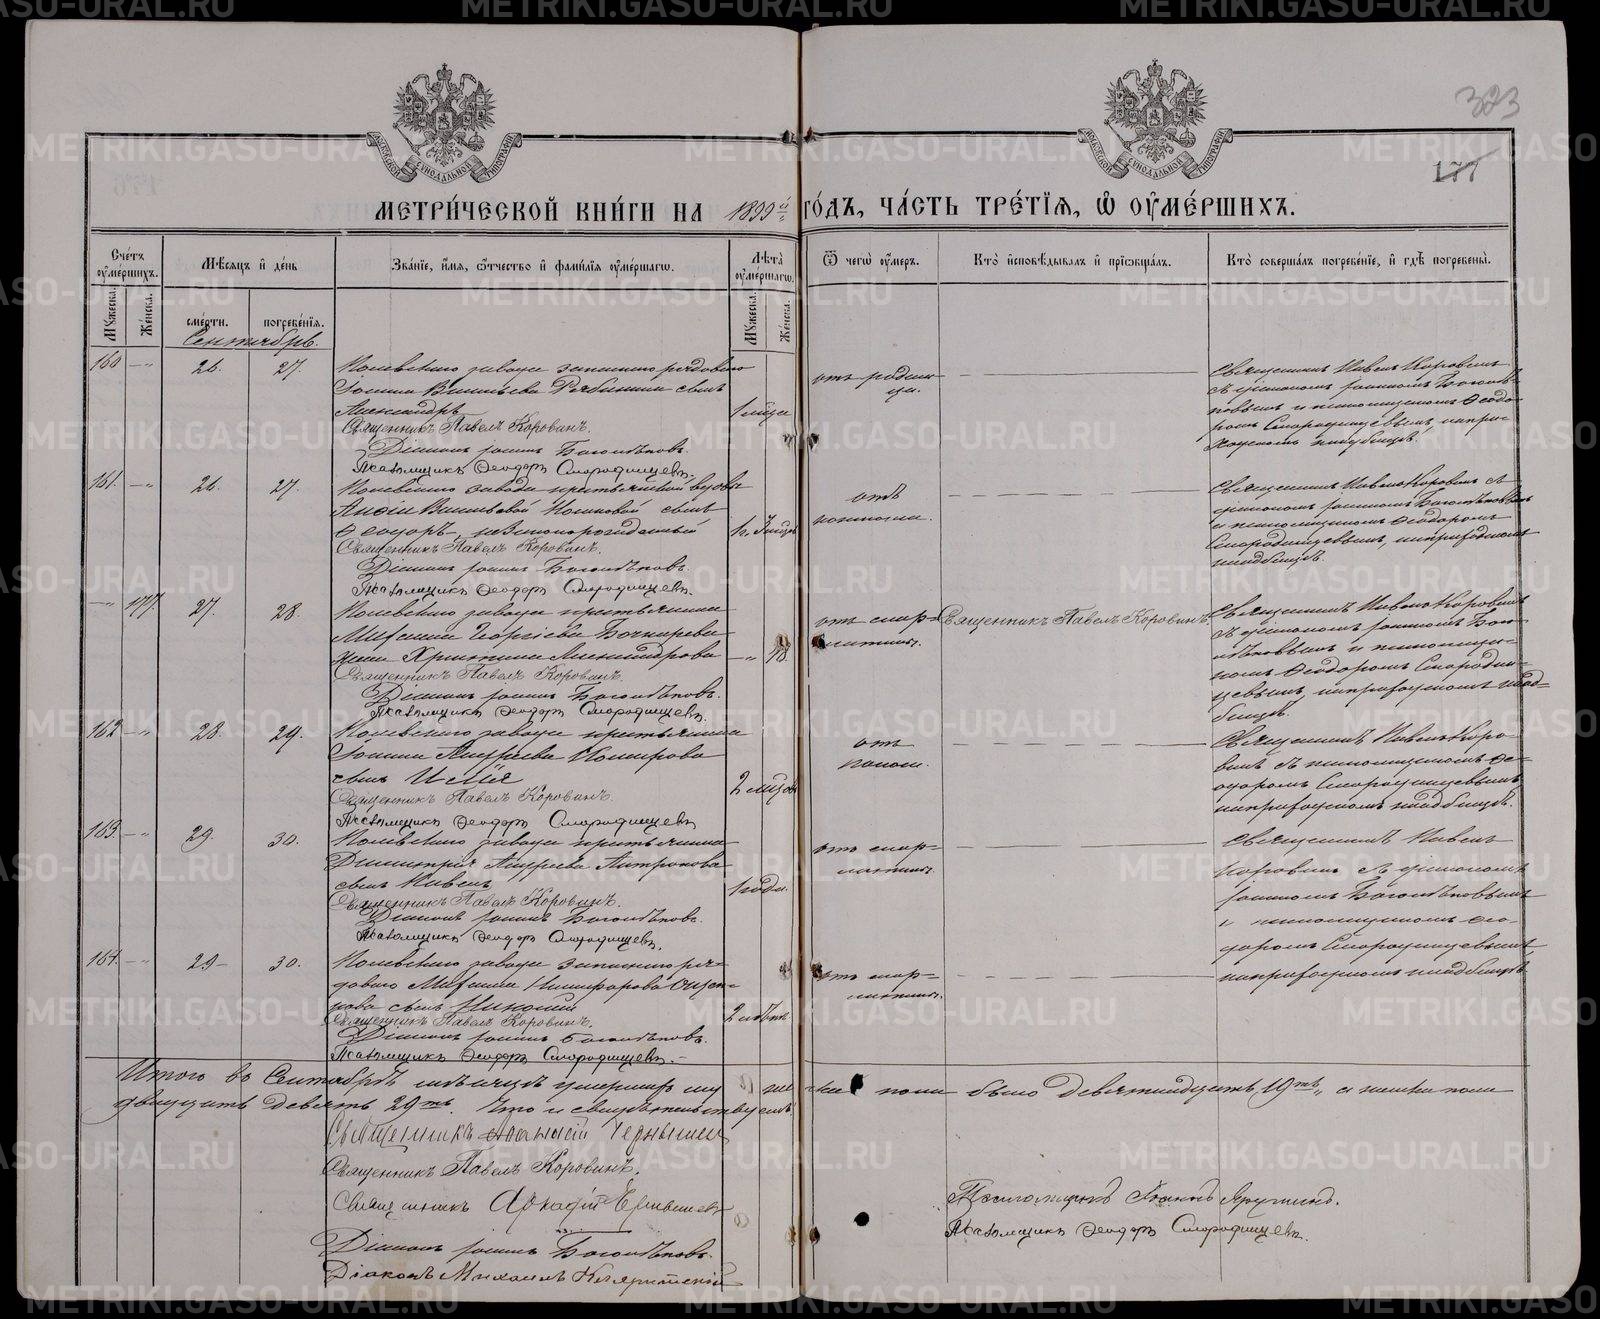 323
177
МЕТРИ́ЧЕСКОЙ КНИ́ГИ НА 1899 й ГО́ДЪ, ЧА́СТЬ ТРЕ́ТІѦ, Ѡ҆ ОУ҆МЕ́РШИХЪ.
Сче́тъ оу҆ме́ршихъ.
Мѣ́сяцъ и҆ де́нь
Зва́ніе, и҆́мя, ѻ҆́тчество и҆ фами́лія оу҆ме́ршагѡ.
Лѣ́та оу҆ме́ршагѡ.
Ѿ чегѡ̀ оу҆́меръ.
Кто̀ и҆сповѣ́дывалъ и҆ прїѡбща́лъ.
Кто̀ соверша́лъ погребе́ніе, и҆ гдѣ̀ погребены̀.
Мꙋ́жеска.
Же́нска.
сме́рти.
погребе́нія.
Мꙋ́жеска.
Же́нска.
Сентябрь.
160 — 26. 27. Полевскаго завода запаснаго рядового
Іоанна Васильева Рябинина сынъ
Александръ 1 мѣсяца
Священникъ Павелъ Коровинъ.
Діаконъ Іоаннъ Боголѣповъ.
Псаломщикъ Ѳеодоръ Смородинцевъ.
отъ родимца.
Священникъ Павелъ Коровинъ
съ діакономъ Іоанномъ Боголѣ-
повымъ и псаломщикомъ Ѳеодо-
ромъ Смородинцевымъ на при-
ходскомъ кладбищѣ.
161. — 26. 27. Полевскаго завода крестьянской вдовы
Васильевой сынъ
Ѳеодоръ, незаконорожденный
Священникъ Павелъ Коровинъ.
Діаконъ Іоаннъ Боголѣповъ.
Псаломщикъ Ѳеодоръ Смородинцевъ.
отъ
Священникъ Павелъ Коровинъ съ
діакономъ Іоанномъ Боголѣповымъ
и псаломщикомъ Ѳеодоромъ
Смородинцевымъ, на приходскомъ
кладбищѣ.
— 177. 27. 28. Полевскаго завода крестьянина
Михаила Георгіева Бочкарева
жена Христина Александрова — 78.
Священникъ Павелъ Коровинъ.
Діаконъ Іоаннъ Боголѣповъ.
Псаломщикъ Ѳеодоръ Смородинцевъ.
отъ
Священникъ Павелъ Коровинъ.
Священникъ Павелъ Коровинъ
съ діакономъ Іоанномъ Бого-
лѣповымъ и псаломщи-
комъ Ѳеодоромъ Смородин-
цевымъ, на приходскомъ клад-
бищѣ.
162 — 28. 29. Полевскаго завода крестьянина
Іоанна Андреева
сынъ Илія 2 мѣсяцов
Священникъ Павелъ Коровинъ.
Псаломщикъ Ѳеодоръ Смородинцевъ
отъ
поноса.
Священникъ Павелъ Коро-
винъ съ псаломщикомъ Ѳе-
одоромъ Смородинцевымъ,
на приходскомъ кладбищѣ.
163. — 29. 30. Полевскаго завода крестьянина
Димитрія Андреева
сынъ Павелъ 1 года.
Священникъ Павелъ Коровинъ.
Діаконъ Іоаннъ Боголѣповъ.
Псаломщикъ Ѳеодоръ Смородинцевъ.
отъ скар-
латины.
Священникъ Павелъ
Коровинъ съ діакономъ
Іоанномъ Боголѣповымъ
и псаломщикомъ Ѳео-
доромъ Смородинцевымъ
на приходскомъ кладбищѣ
164. — 29 30. Полевскаго завода запаснаго ря-
дового Михаила Никифорова
сынъ Николай 2 лѣтъ
Священникъ Павелъ Коровинъ.
Діаконъ Іоаннъ Боголѣповъ.
Псаломщикъ Ѳеодоръ Смородинцевъ.
отъ скар-
латины.
Итого въ Сентябрѣ мѣсяцѣ умершихъ мужеска пола было девятнадцать, 19ть, а женска пола
двадцать девять 29ть. Что и свидѣтельствуемъ:
Священникъ Чернышевъ
Священникъ Павелъ Коровинъ.
Священникъ Аркадій
Діаконъ Іоаннъ Боголѣповъ.
Діаконъ Михаилъ
Псаломщикъ Іоаннъ Яручинъ.
Псаломщикъ Ѳеодоръ Смородинцевъ.
METRIKI.GASO-URAL.RU